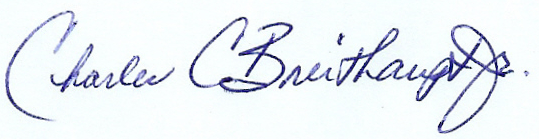 Charles C Breithaupt Jr.